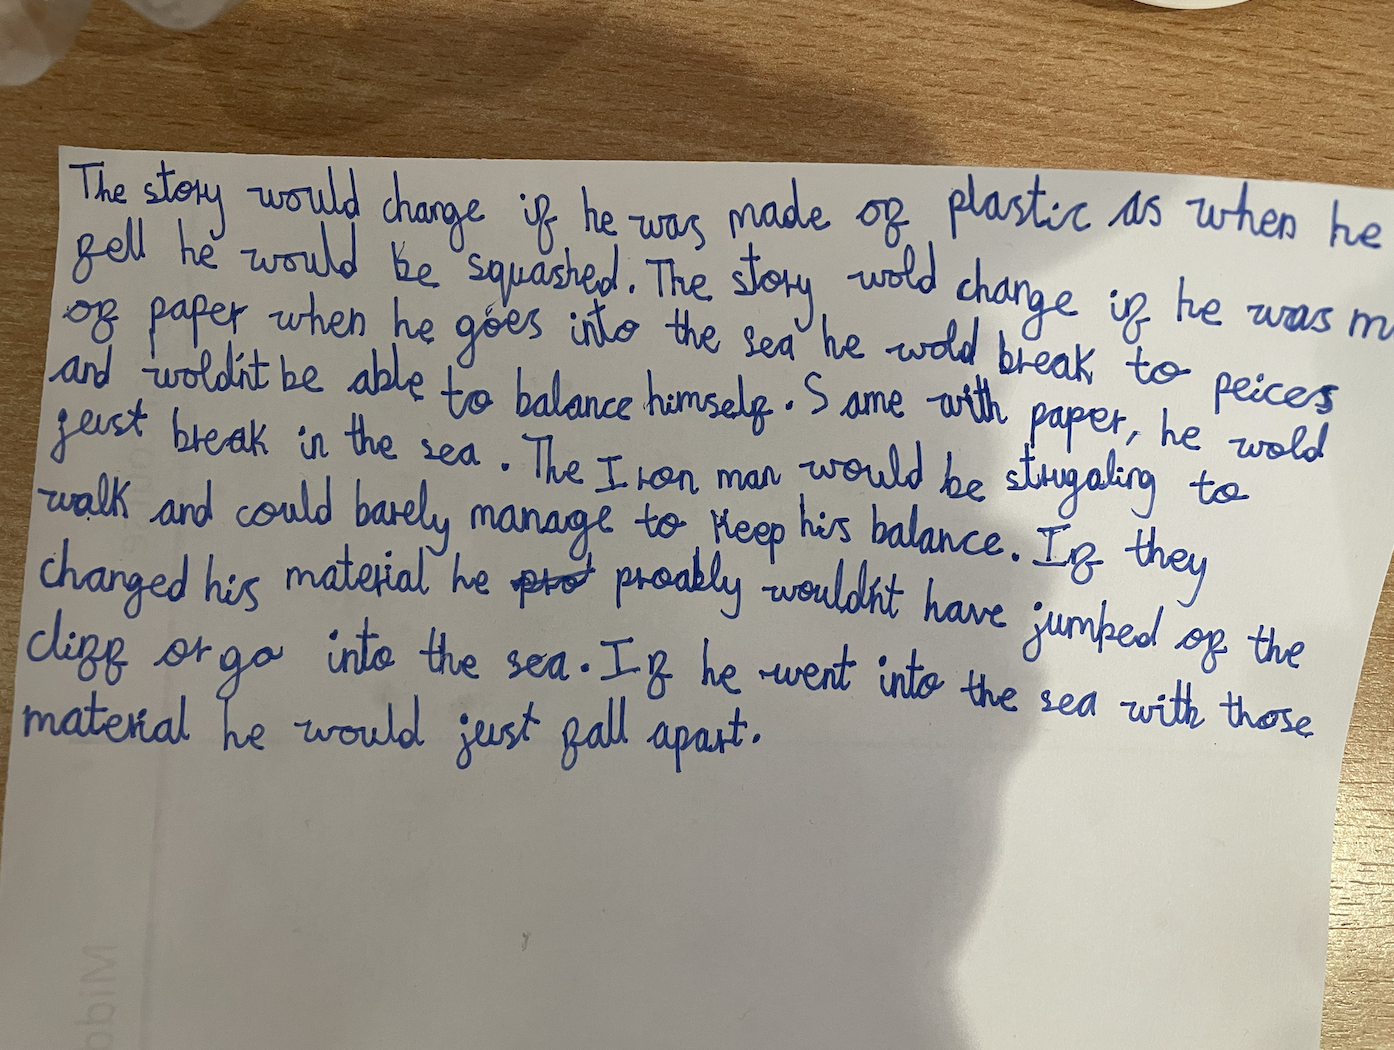 The story would change if he was made of plastic as when he
fell he would be squashed. The story wold change if he was m
of paper when he goes into the sea he wold break to peices
and woldn't be able to balance himself. Same with paper, he wold
just break in the sea. The Iron man would be strugaling to
walk and could barely manage to keep his balance. If they
changed his material he pro proably wouldn't have jumped of the
cliff or go into the sea. If he went into the sea with those
material he would just fall apart.